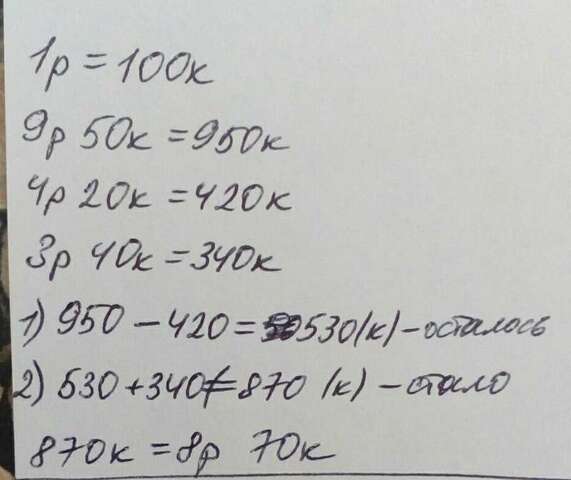 1р = 100к
9р 50к = 950к
4р 20к = 420к
3р 40к = 340к
1) 950 - 420 = 530 (к) - осталось
2) 530 + 340 = 870 (к) - стало
870к = 8р 70к